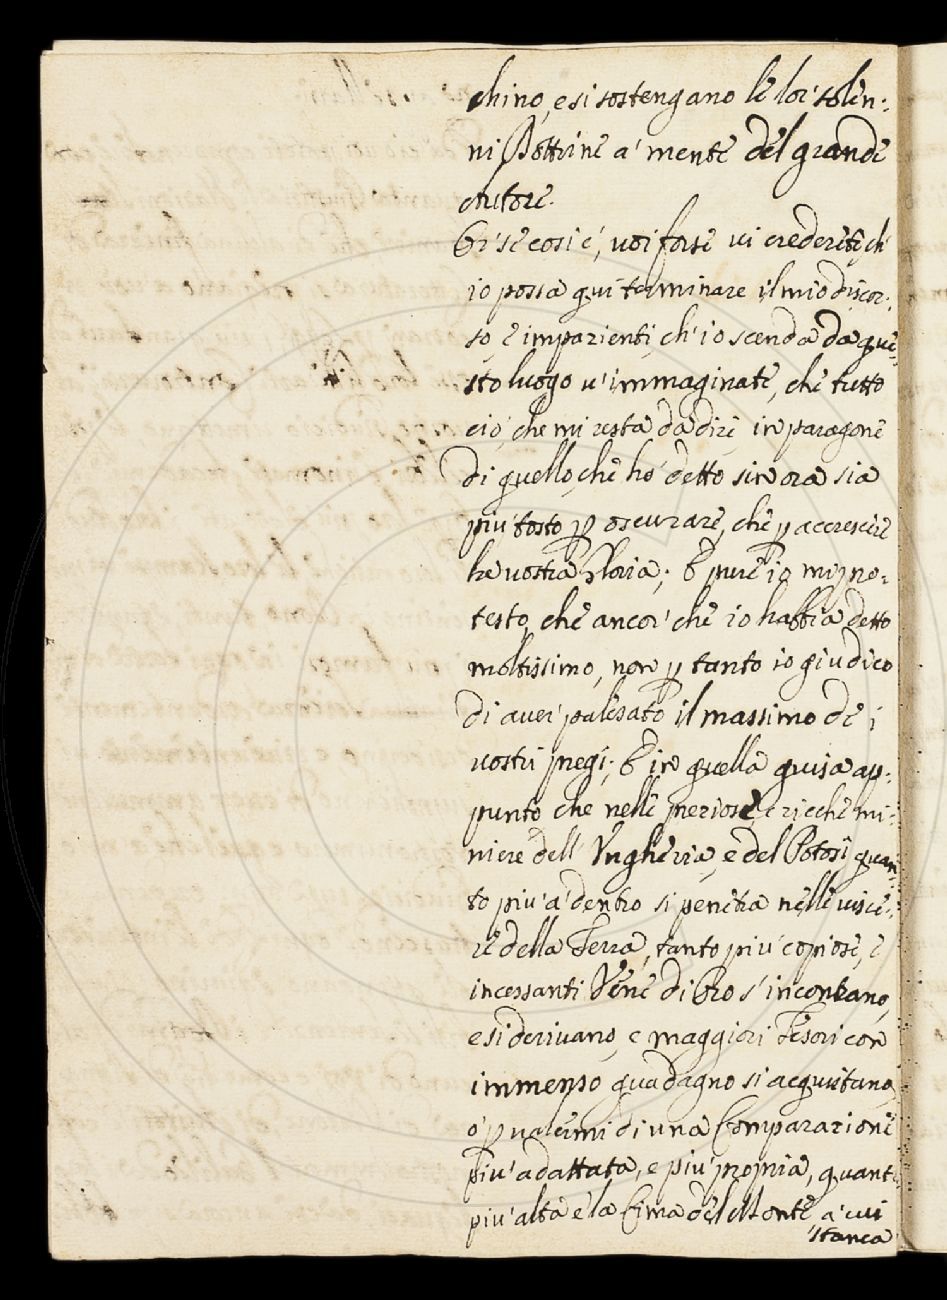 chino, e si sostengano le lor' solen:
ni Dottrine a' mente del grande
Autore.
Or' se cosi e', voi forse vi crederete ch'
io possa qui terminare il mio discor:
so, e impazienti, ch' io scenda da que:
sto luogo v' immaginate, che tutto
ciò, che mi resta da dire in paragone
di quello, che ho' detto sin ora sia
piu' tosto p oscurare, che p accrescere
la vostra Gloria; E pure io mi pro:
testo, che ancor' che io habbia detto
moltissimo, non p tanto io giudico
di aver' palesato il massimo de i
vostri pregi; E in quella guisa ap:
punto che nelle preziose, e ricche mi:
niere dell' Ungheria, e del Potosi quan:
to piu' a' dentro si penetra nelle visce:
re della Terra, tanto piu' copiose, e
incessanti Vene di Oro s' incontrano,
e si derivano, e maggiori Tesori con
immenso guadagno si acquistano,
o' p valermi di una Comparazione
piu' adattata, e piu' propria, quanto
piu' alta è la Cima del Monte a' cui
stanca